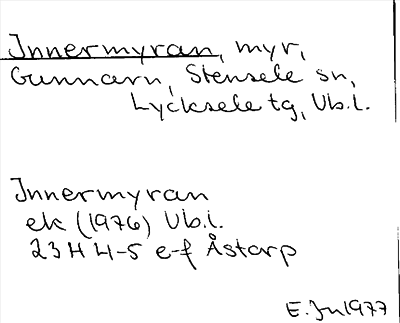 Innermyran, myr,
Gunnarn, Stensele sn,
Lycksele tg, Vb.l.
Innermyran
ek (1976) Vb.l.
23 H 4-5 e-f Åstorp
E. Jn 1977